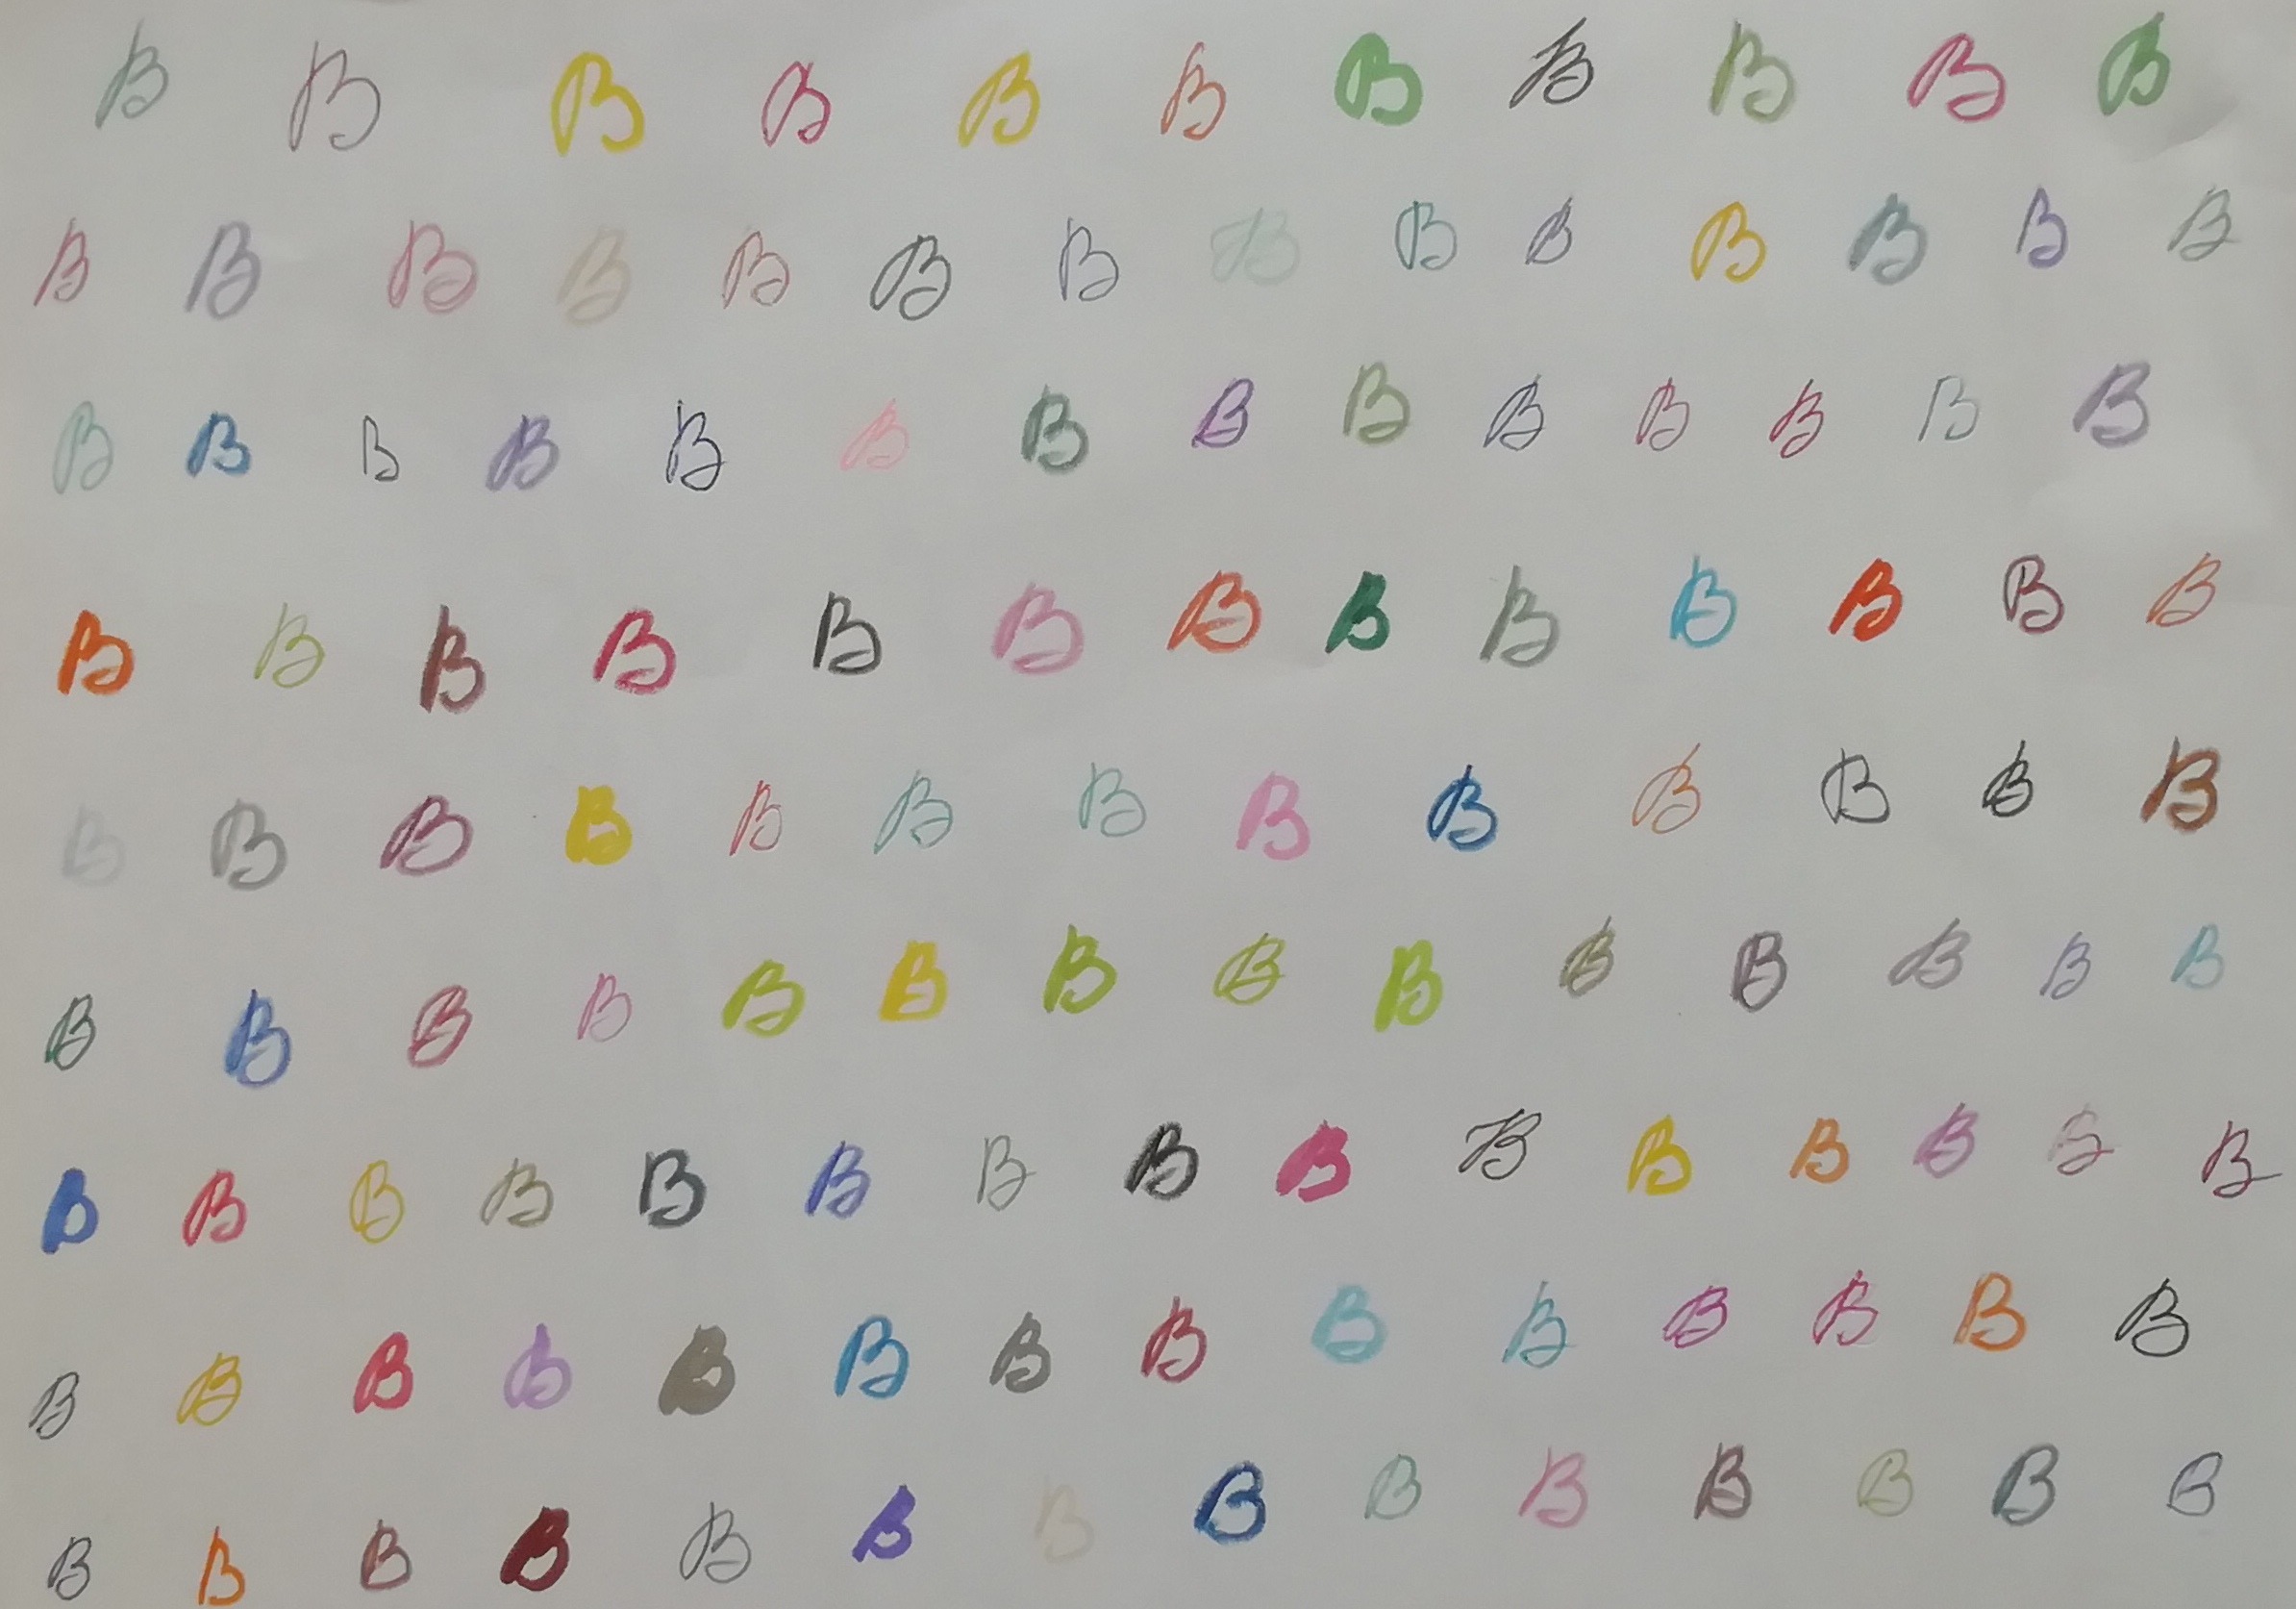 B B B B B B B B B B B
B B B B B B B B B B B B B B
B B B B B B B B B B B B B B
B B B B B B B B B B B B B
B B B B B B B B B B B B B
B B B B B B B B B B B B B B
B B B B B B B B B B B B B B B
B B B B B B B B B B B B B B
B B B B B B B B B B B B B B